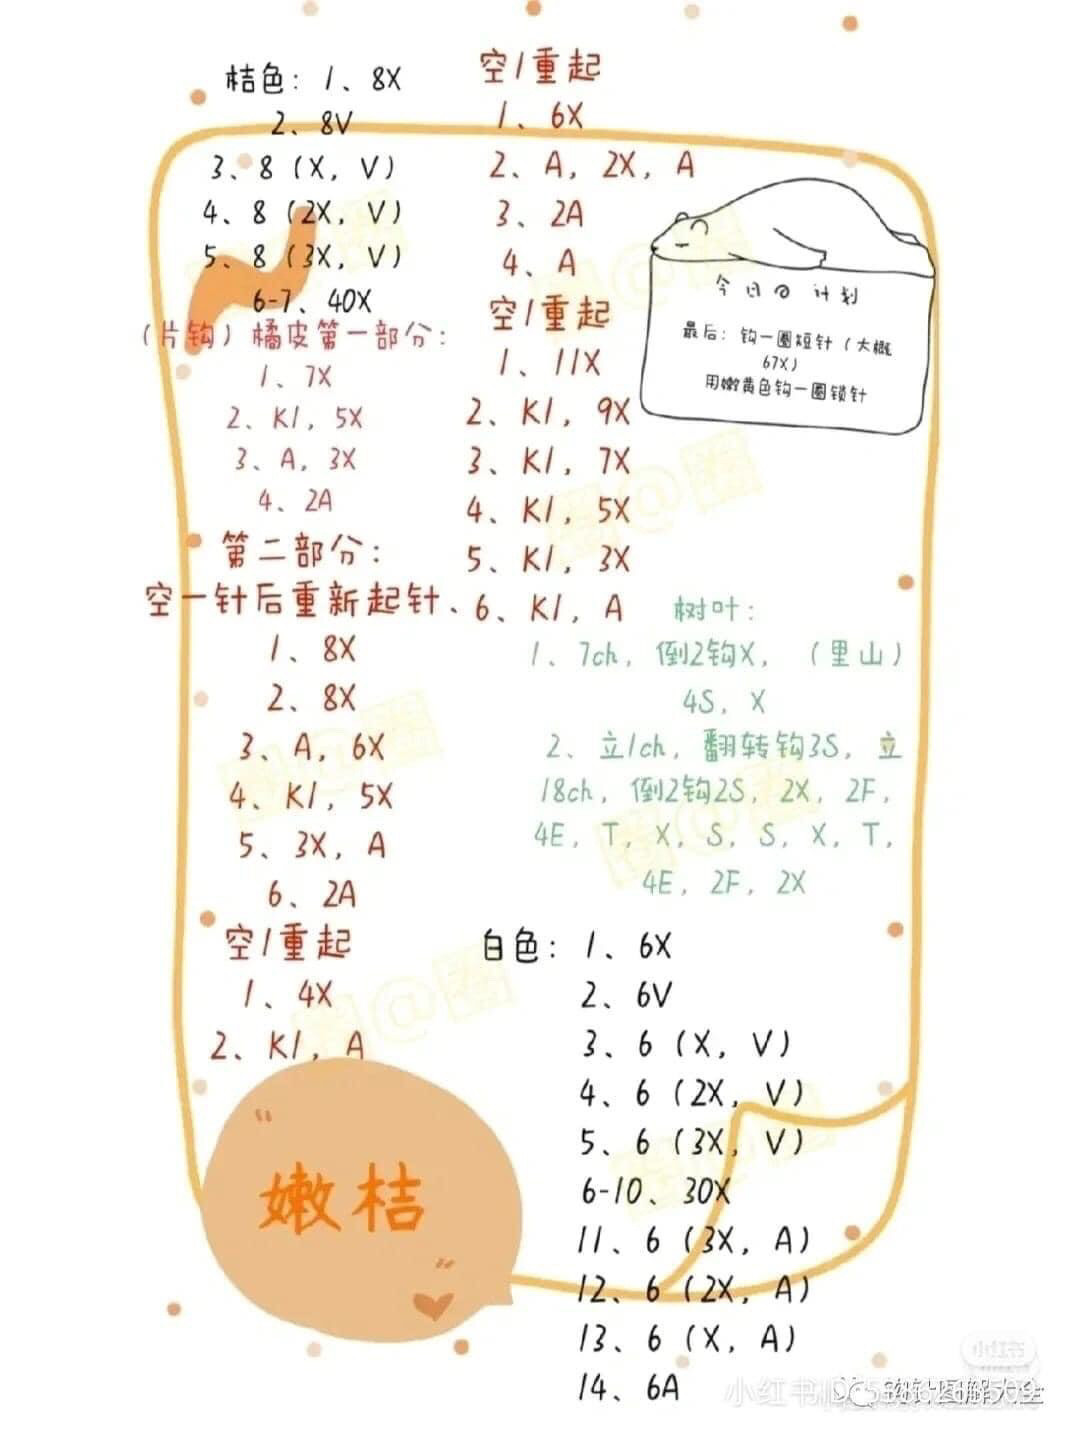 桔色：1、8X
2、8V
3、8（X，V）
4、8（2X，V）
5、8（3X，V）
6-7、40X
（片钩）橘皮第一部分：
1、7X
2、K1，5X
3、A，3X
4、2A
第二部分：
空一针后重新起针、
1、8X
2、8X
3、A，6X
4、K1，5X
5、3X，A
6、2A
空1重起
1、4X
2、K1，A
空1重起
1、6X
2、A，2X，A
3、2A
4、A
空1重起
1、11X
2、K1，9X
3、K1，7X
4、K1，5X
5、K1，3X
6、K1，A
今日の计划
最后：钩一圈短针（大概
67X）
用嫩黄色钩一圈锁针
树叶：
1、7ch，倒2钩X，（里山）
4S，X
2、立1ch，翻转钩3S，立
18ch，倒2钩2S，2X，2F，
4E，T，X，S，S，X，T，
4E，2F，2X
白色：1、6X
2、6V
3、6（X，V）
4、6（2X，V）
5、6（3X，V）
6-10、30X
11、6（3X，A）
12、6（2X，A）
13、6（X，A）
14、6A
嫩桔
小红书
小红书